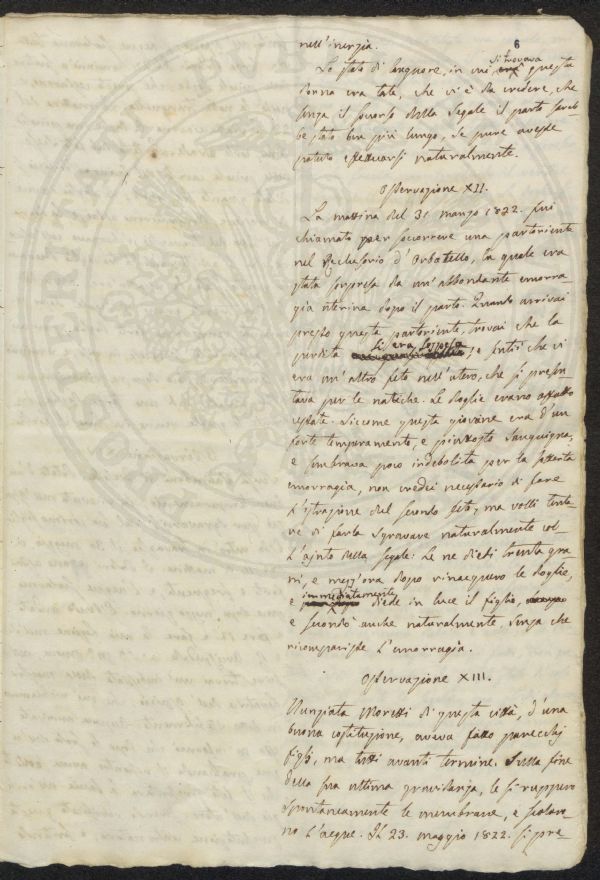 6
nell'inerzia.
Lo stato di languore, in cui si trovava questa
donna era tale, che vi è da credere, che
senza il soccorso della Segale il parto sareb-
be stato ben più lungo, se pure avesse
potuto effettuarsi naturalmente.
Osservazione XII.
La mattina del 31 marzo 1822. fui
chiamato per soccorrere una partoriente
nel Reclusorio d'Orbatello, la quale era
stata sorpresa da un'abbondante emorra-
gia uterina dopo il parto. Quando arrivai
presso questa partoriente, trovai che la
perdita si era sospesa, e sentii che vi
era un'altro feto nell'utero, che si presen-
tava per le natiche. Le doglie erano affatto
cessate. Siccome questa giovane era d'un
forte temperamento, e piuttosto sanguigna,
e sembrava poco indebolita per la sofferta
emorragia, non credei necessario di fare
l'estrazione del secondo feto, ma volli tenta-
re di farla sgravare naturalmente col-
l'ajuto della Segale: Le ne diedi trenta gra-
ni, e mezz'ora dopo rinacquero le doglie,
e immediatamente diede in luce il figlio,
e secondò anche naturalmente, senza che
ricomparisse l'emorragia.
Osservazione XIII.
Nunziata Moretti di questa città, d'una
buona costituzione, aveva fatto parecchj
figli, ma tutti avanti termine. Sulla fine
della sua ultima gravidanza, le si ruppero
spontaneamente le membrane, e scolaro-
no l'acque. Il 23. maggio 1822. si pre-